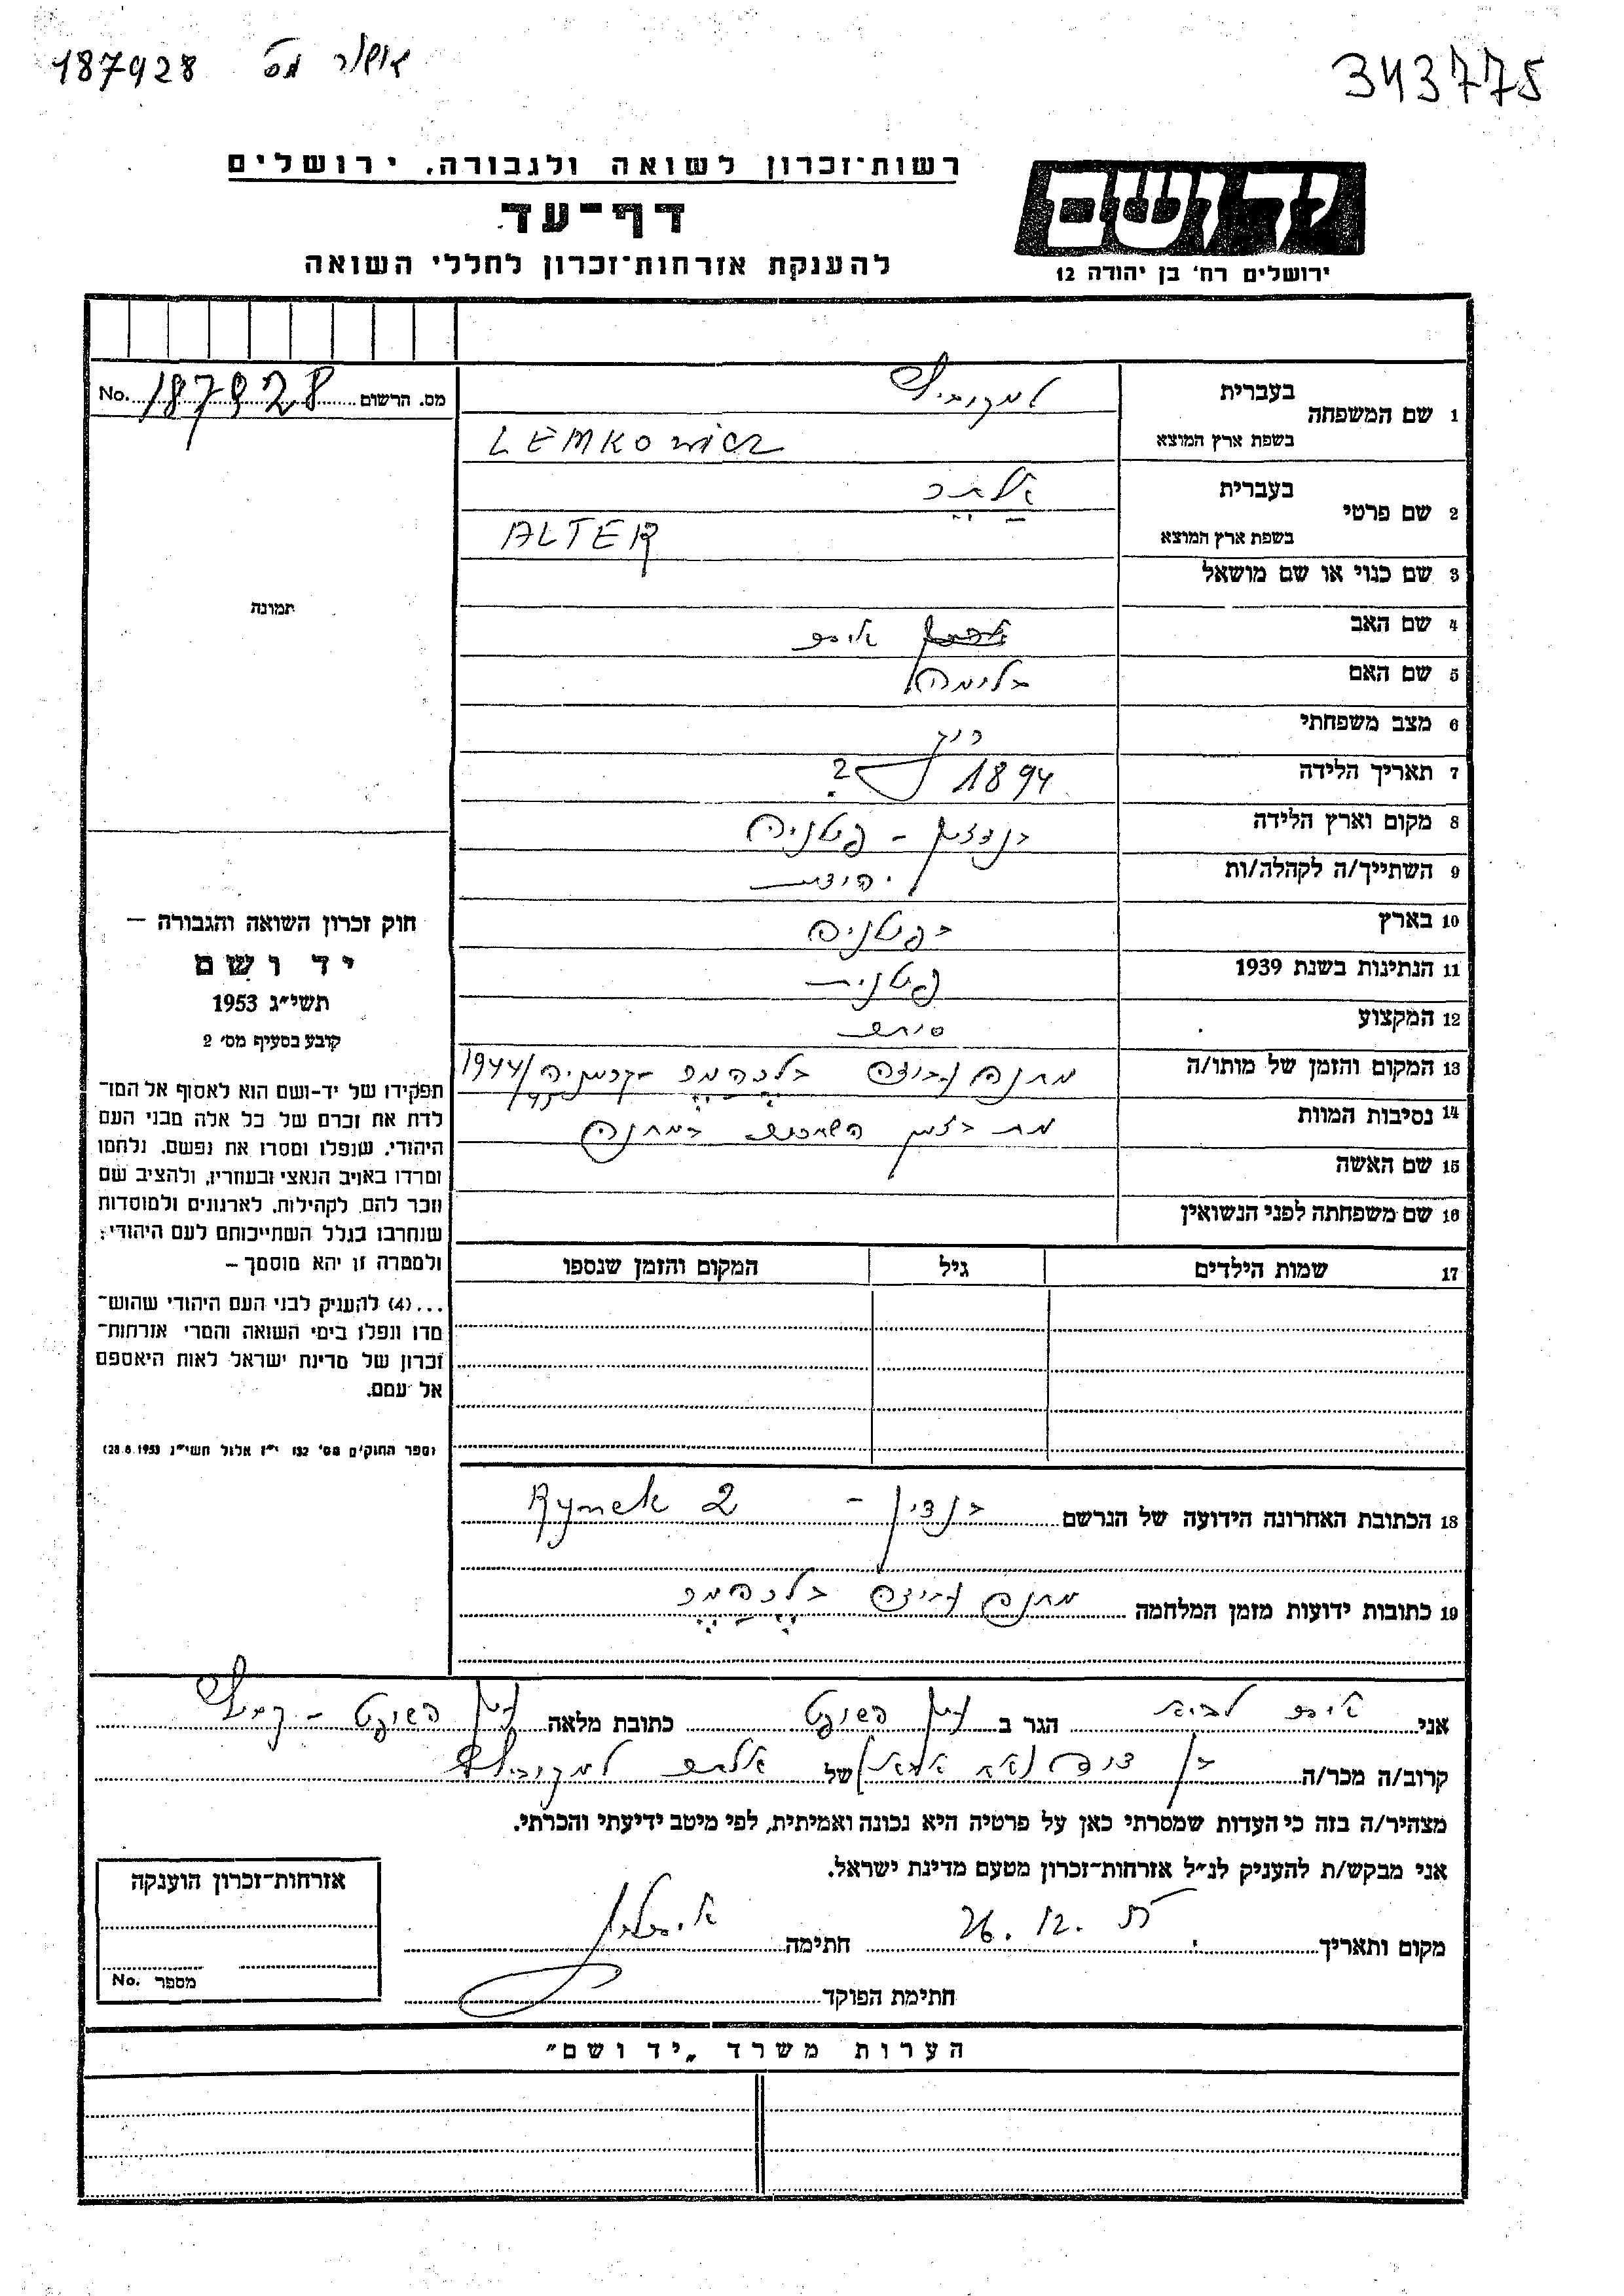 187928 אושר מס
343775
רשות־זכרון לשואה ולגבורה, ירושלים
דף־עד
להענקת אזרחות־זכרון לחללי השואה
יד ושם
ירושלים רח' בן יהודה 12
מס. הרשום No. 187928
1 שם המשפחה בעברית למקוביץ
בשפת ארץ המוצא LEMKOWICZ
2 שם פרטי בעברית אלתר
בשפת ארץ המוצא ALTER
3 שם כנוי או שם מושאל
4 שם האב
5 שם האם בלימה
6 מצב משפחתי רוק
7 תאריך הלידה 1894 ?
8 מקום וארץ הלידה בנדצין – פולניה
9 השתייך/ה לקהלה/ות יהודית
10 בארץ בפולניה
11 הנתינות בשנת 1939 פולנית
12 המקצוע סוחר
13 המקום והזמן של מותו/ה מחנה עבודה בלכהמר גרמניה 1944/45
14 נסיבות המוות מת בזמן במחנה
15 שם האשה
16 שם משפחתה לפני הנשואין
17 שמות הילדים גיל המקום והזמן שנספו
18 הכתובת האחרונה הידועה של הנרשם בנדצין – Rynek 2
19 כתובות ידועות מזמן המלחמה מחנה עבודה בלכהמר
תמונה
חוק זכרון השואה והגבורה –
יד ושם
תשי״ג 1953
קובע בסעיף מס׳ 2
תפקידו של יד-ושם הוא לאסוף אל המו־
לדת את זכרם של כל אלה מבני העם
היהודי, שנפלו ומסרו את נפשם, נלחמו
ומרדו באויב הנאצי ובעוזריו, ולהציב שם
וזכר להם, לקהילות, לארגונים ולמוסדות
שנחרבו בגלל השתייכותם לעם היהודי;
ולמטרה זו יהא מוסמך –
...(4) להעניק לבני העם היהודי שהוש־
מדו ונפלו בימי השואה והמרי אזרחות־
זכרון של מדינת ישראל לאות היאספם
אל עמם.
(ספר החוקים מס׳ 132 י״ז אלול תשי״ג 28.8.1953)
אני הגר ב עין השופט כתובת מלאה עין השופט –
קרוב/ה מכר/ה בן דוד של אלתר למקוביץ
מצהיר/ה בזה כי העדות שמסרתי כאן על פרטיה היא נכונה ואמיתית, לפי מיטב ידיעתי והכרתי.
אני מבקש/ת להעניק לנ״ל אזרחות־זכרון מטעם מדינת ישראל.
מקום ותאריך 26.12. חתימה
חתימת הפוקד
אזרחות־זכרון הוענקה
מספר No.
הערות משרד „יד ושם״